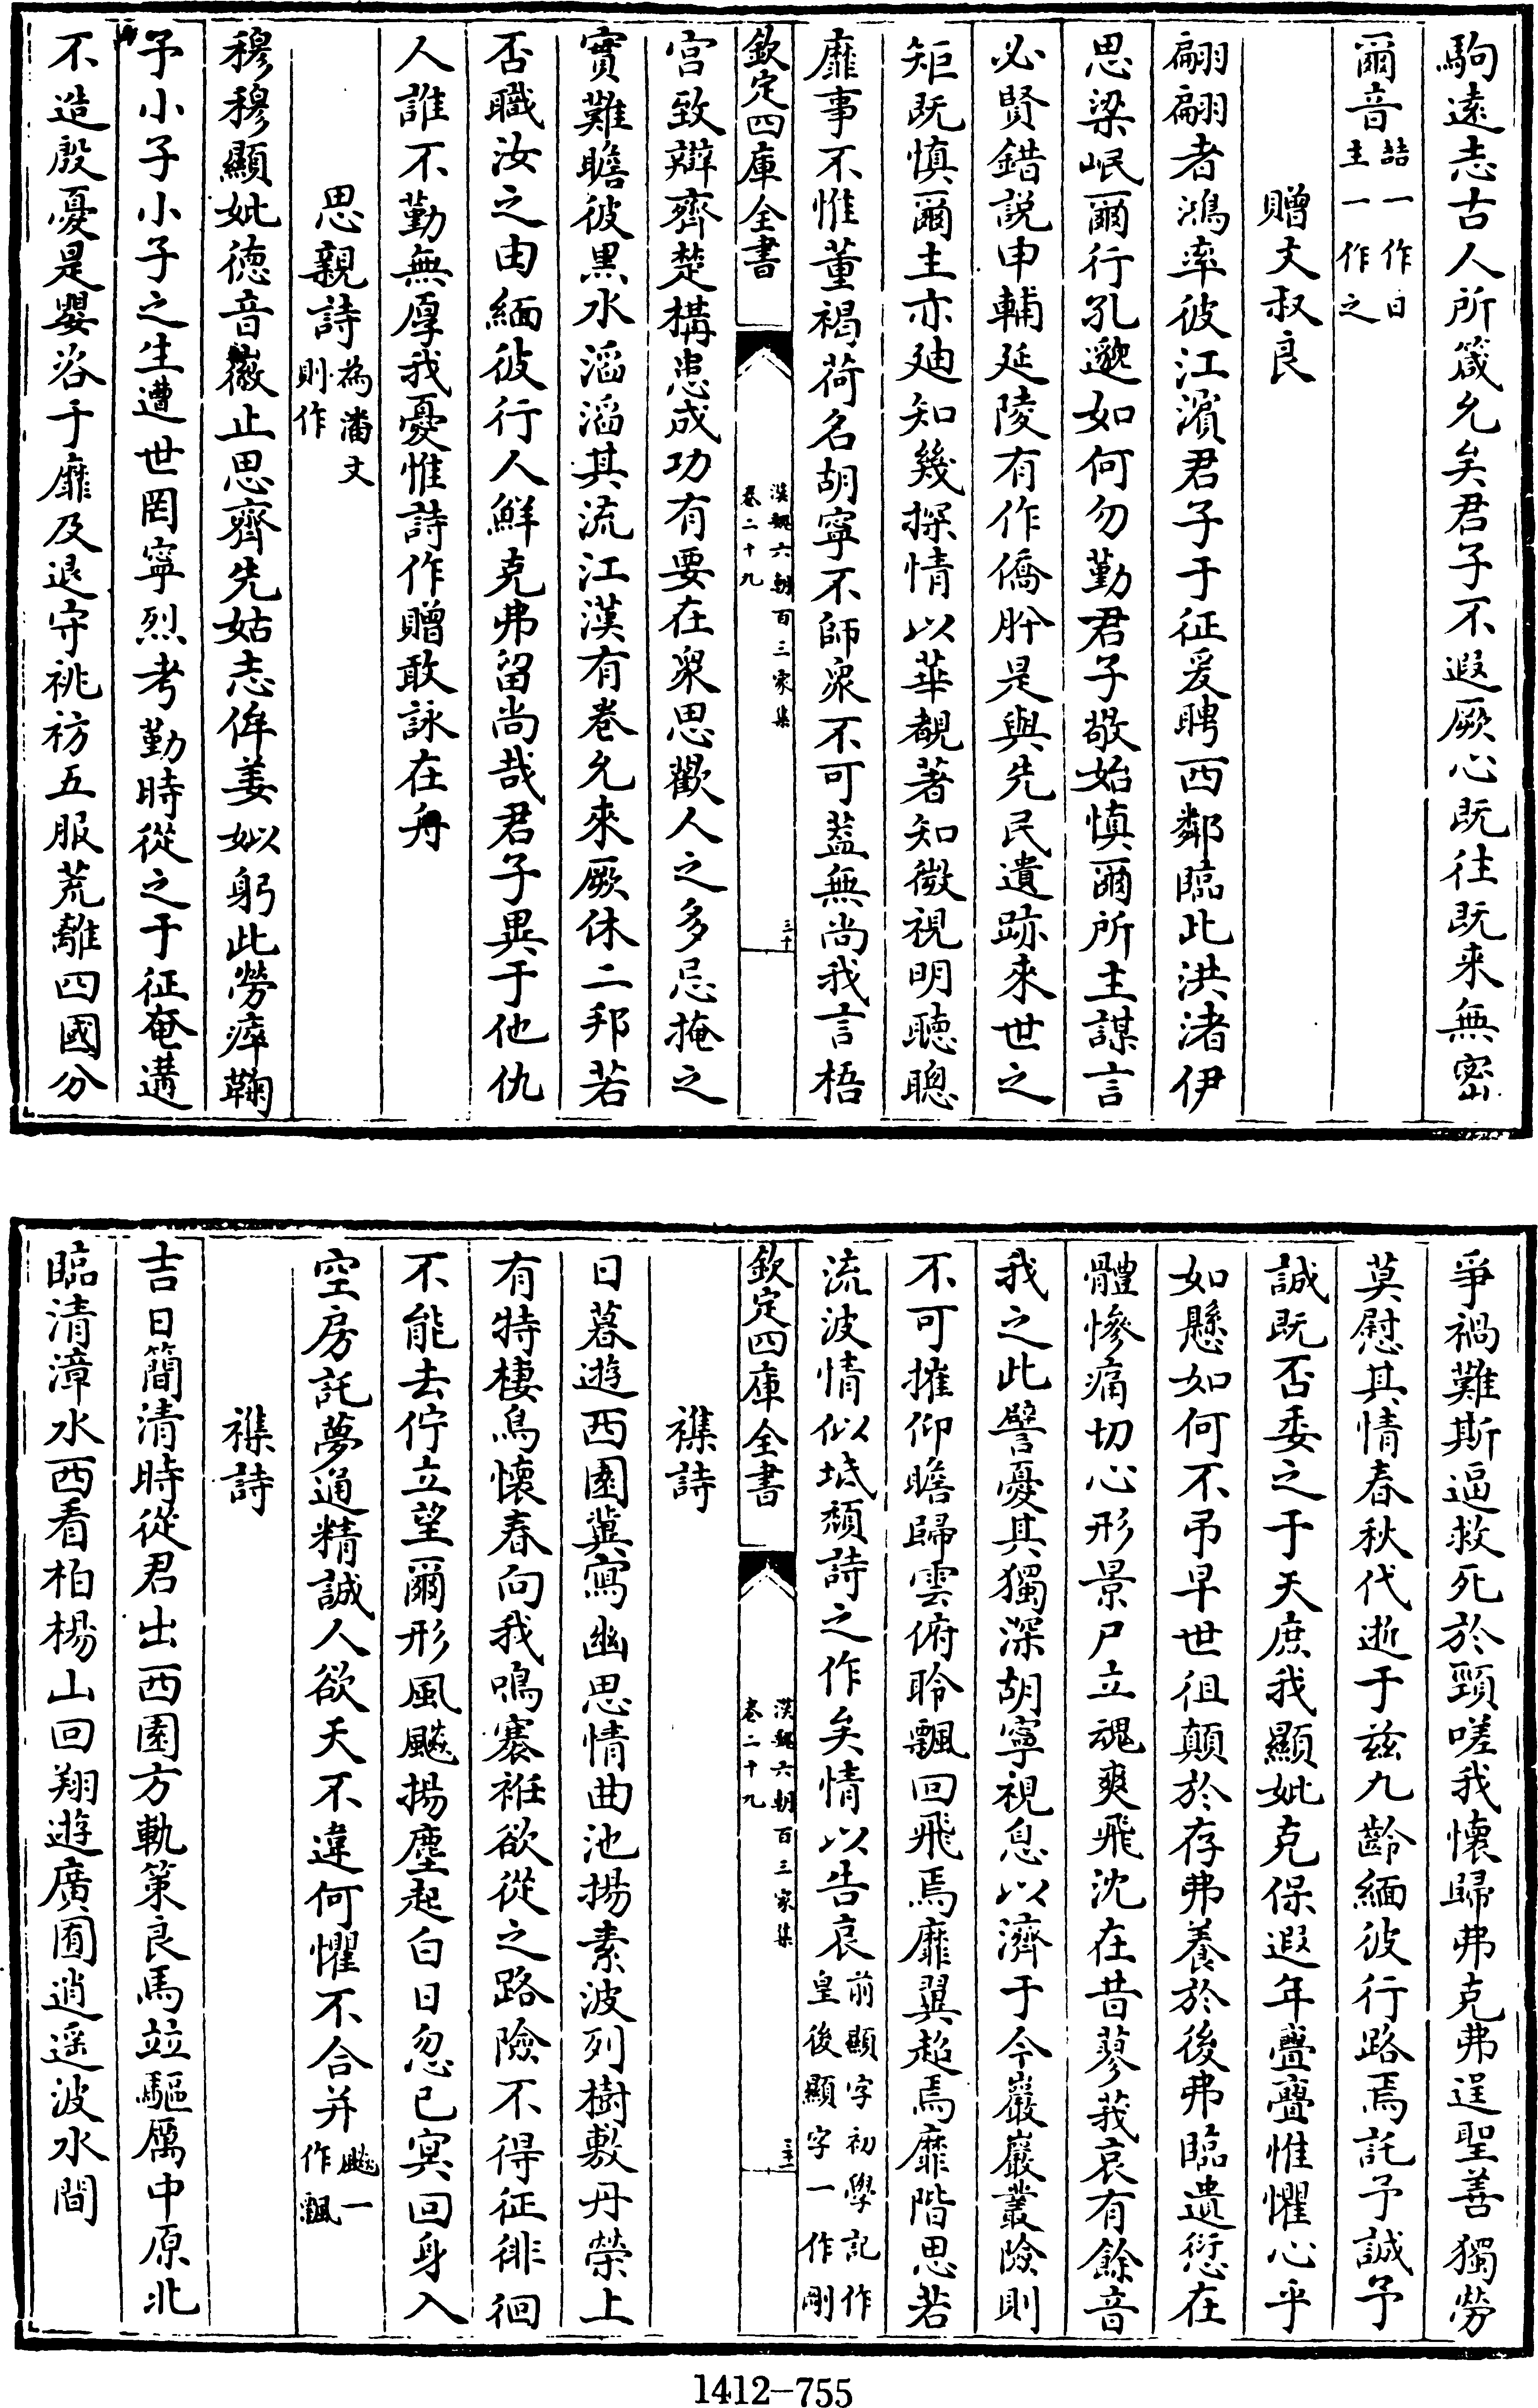 駒遠志古人所箴允矣君子不遐厥心既往既來無密
爾音詰一作日主一作之
贈文叔良
翩翩者鴻率彼江濱君子于征爰聘西鄰臨此洪渚伊
思梁岷爾行孔邈如何勿勤君子敬始慎爾所主謀言
必賢錯説申輔延陵有作僑肸是與先民遺跡來世之
矩既慎爾主亦廸知幾探情以華覩著知微視明聽聰
靡事不惟董褐荷名胡寧不師衆不可葢無尚我言梧
欽定四庫全書
漢魏六朝百三家集
卷二十九
三十
宫致辯齊楚構患成功有要在衆思歡人之多忌掩之
實難瞻彼黒水滔滔其流江漢有卷允來厥休二邦若
否職汝之由緬彼行人鮮克弗留尚哉君子異于他仇
人誰不勤無厚我憂惟詩作贈敢詠在舟
思親詩為潘文則作
穆穆顯妣徳音徽止思齊先姑志侔姜姒躬此勞瘁鞠
予小子小子之生遭世罔寧烈考勤時從之于征奄遘
不造殷憂是嬰咨于靡及退守祧祊五服荒離四國分
爭禍難斯逼救死於頸嗟我懷歸弗克弗逞聖善獨勞
莫慰其情春秋代逝于兹九齡緬彼行路焉託予誠予
誠既否委之于天庶我顯妣克保遐年亹亹惟懼心乎
如懸如何不弔早世徂顛於存弗養於後弗臨遺愆在
體慘痛切心形景尸立魂爽飛沈在昔蓼莪哀有餘音
我之此譬憂其獨深胡寧視息以濟于今巖巖叢險則
不可摧仰瞻歸雲俯聆飄回飛焉靡翼超焉靡階思若
流波情似坻頽詩之作矣情以告哀前顯字初學記作皇後顯字一作剛
欽定四庫全書
漢魏六朝百三家集
卷二十九
三十一
襍詩
日暮遊西園冀寫幽思情曲池揚素波列樹敷丹榮上
有特棲鳥懷春向我鳴褰袵欲從之路險不得征徘徊
不能去佇立望爾形風飈揚塵起白日忽已冥回身入
空房託夢通精誠人欲天不違何懼不合并飈一作飄
襍詩
吉日簡清時從君出西園方軌策良馬竝驅厲中原北
臨清漳水西看柏楊山回翔遊廣囿逍遥波水間
1412-755